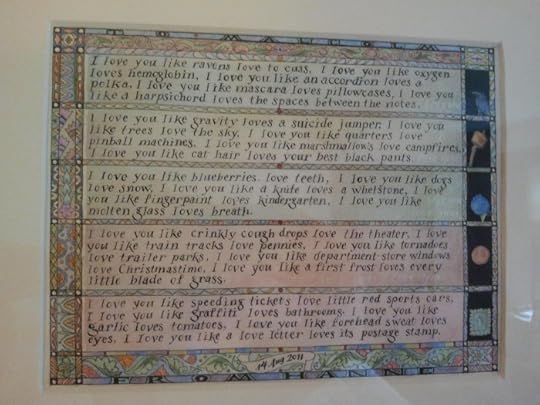 I love you like ravens love to cuss, I love you like oxygen
loves hemoglobin, I love you like an accordion loves a
polka, I love you like mascara loves pillowcases, I love you
like a harpsichord loves the spaces between the notes.
I love you like gravity loves a suicide jumper, I love you
like trees love the sky, I love you like quarters love
pinball machines, I love you like marshmallows love campfires,
I love you like cat hair loves your best black pants.
I love you like blueberries love teeth, I love you like dogs
love snow, I love you like a knife loves a whetstone, I love
you like fingerpaint loves kindergarten, I love you like
molten glass loves breath.
I love you like crinkly cough drops love the theater, I love
you like train tracks love pennies, I love you like tornadoes
love trailer parks, I love you like department store windows
love Christmastime, I love you like a first frost loves every
little blade of grass.
I love you like speeding tickets love little red sports cars,
I love you like graffiti loves bathrooms, I love you like
garlic loves tomatoes, I love you like forehead sweat loves
eyes, I love you like a love letter loves its postage stamp.
14 Aug 2011